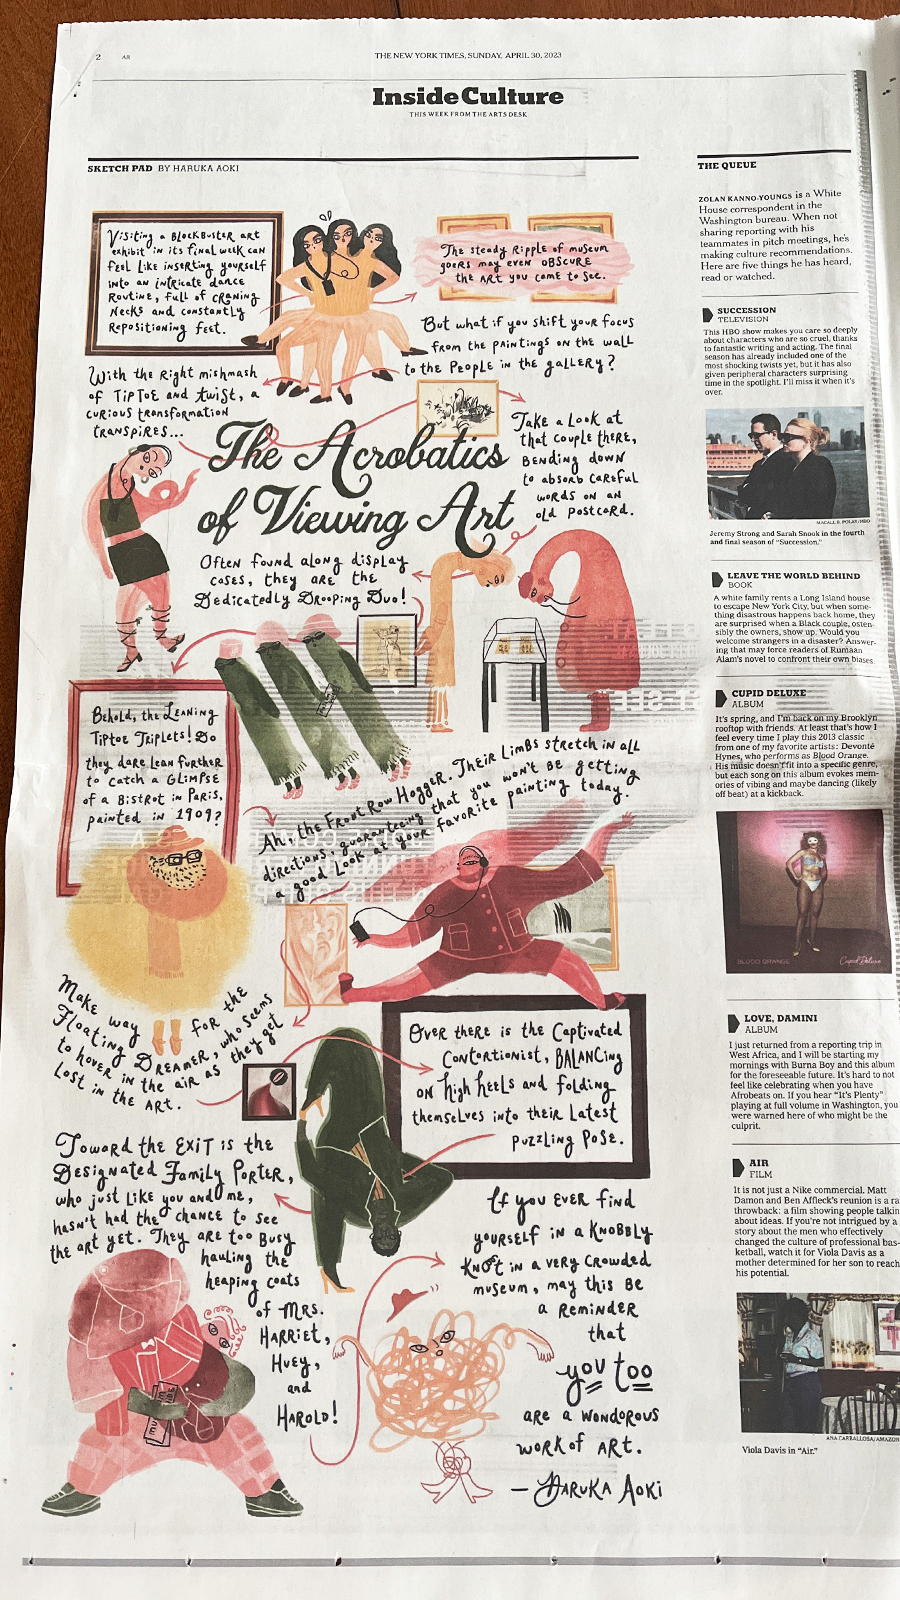 2
AR
THE NEW YORK TIMES, SUNDAY, APRIL 30, 2023
Inside Culture
THIS WEEK FROM THE ARTS DESK
SKETCH PAD BY HARUKA AOKI
Visiting a blockbuster art
exhibit in its final week can
feel like inserting yourself
into an intricate dance
routine, full of craning
necks and constantly
repositioning feet.
The steady ripple of museum
goers may even obscure
the art you come to see.
But what if you shift your focus
from the paintings on the wall
to the people in the gallery?
With the right mishmash
of tiptoe and twist, a
curious transformation
transpires...
The Acrobatics
of Viewing Art
Take a look at
that couple there,
bending down
to absorb careful
words on an
old postcard.
Often found along display
cases, they are the
Dedicatedly Drooping Duo!
Behold, the Leaning
Tiptoe Triplets! Do
they dare lean further
to catch a glimpse
of a bistrot in Paris,
painted in 1909?
Ah, the Front Row Hogger. Their limbs stretch in all
directions, guaranteeing that you won't be getting
a good look at your favorite painting today.
Make way for the
Floating Dreamer, who seems
to hover in the air as they get
lost in the art.
Over there is the Captivated
Contortionist, balancing
on high heels and folding
themselves into their latest
puzzling pose.
Toward the exit is the
Designated Family Porter,
who just like you and me,
hasn't had the chance to see
the art yet. They are too busy
hauling the
heaping coats
of Mrs.
Harriet,
Huey,
and
Harold!
If you ever find
yourself in a knobbly
knot in a very crowded
museum, may this be
a reminder
that
you too
are a wondorous
work of art.
— Haruka Aoki
THE QUEUE
ZOLAN KANNO-YOUNGS is a White
House correspondent in the
Washington bureau. When not
sharing reporting with his
teammates in pitch meetings, he's
making culture recommendations.
Here are five things he has heard,
read or watched.
SUCCESSION
TELEVISION
This HBO show makes you care so deeply
about characters who are so cruel, thanks
to fantastic writing and acting. The final
season has already included one of the
most shocking twists yet, but it has also
given peripheral characters surprising
time in the spotlight. I'll miss it when it's
over.
MACALL B. POLAY/HBO
Jeremy Strong and Sarah Snook in the fourth
and final season of "Succession."
LEAVE THE WORLD BEHIND
BOOK
A white family rents a Long Island house
to escape New York City, but when some-
thing disastrous happens back home, they
are surprised when a Black couple, osten-
sibly the owners, show up. Would you
welcome strangers in a disaster? Answer-
ing that may force readers of Rumaan
Alam's novel to confront their own biases.
CUPID DELUXE
ALBUM
It's spring, and I'm back on my Brooklyn
rooftop with friends. At least that's how I
feel every time I play this 2013 classic
from one of my favorite artists: Devonté
Hynes, who performs as Blood Orange.
His music doesn't fit into a specific genre,
but each song on this album evokes mem-
ories of vibing and maybe dancing (likely
off beat) at a kickback.
BLOOD ORANGE
Cupid Deluxe
LOVE, DAMINI
ALBUM
I just returned from a reporting trip in
West Africa, and I will be starting my
mornings with Burna Boy and this album
for the foreseeable future. It's hard to not
feel like celebrating when you have
Afrobeats on. If you hear "It's Plenty"
playing at full volume in Washington, you
were warned here of who might be the
culprit.
AIR
FILM
It is not just a Nike commercial. Matt
Damon and Ben Affleck's reunion is a ra
throwback: a film showing people talkin
about ideas. If you're not intrigued by a
story about the men who effectively
changed the culture of professional bas-
ketball, watch it for Viola Davis as a
mother determined for her son to reach
his potential.
ANA CARBALLOSA/AMAZON
Viola Davis in "Air."